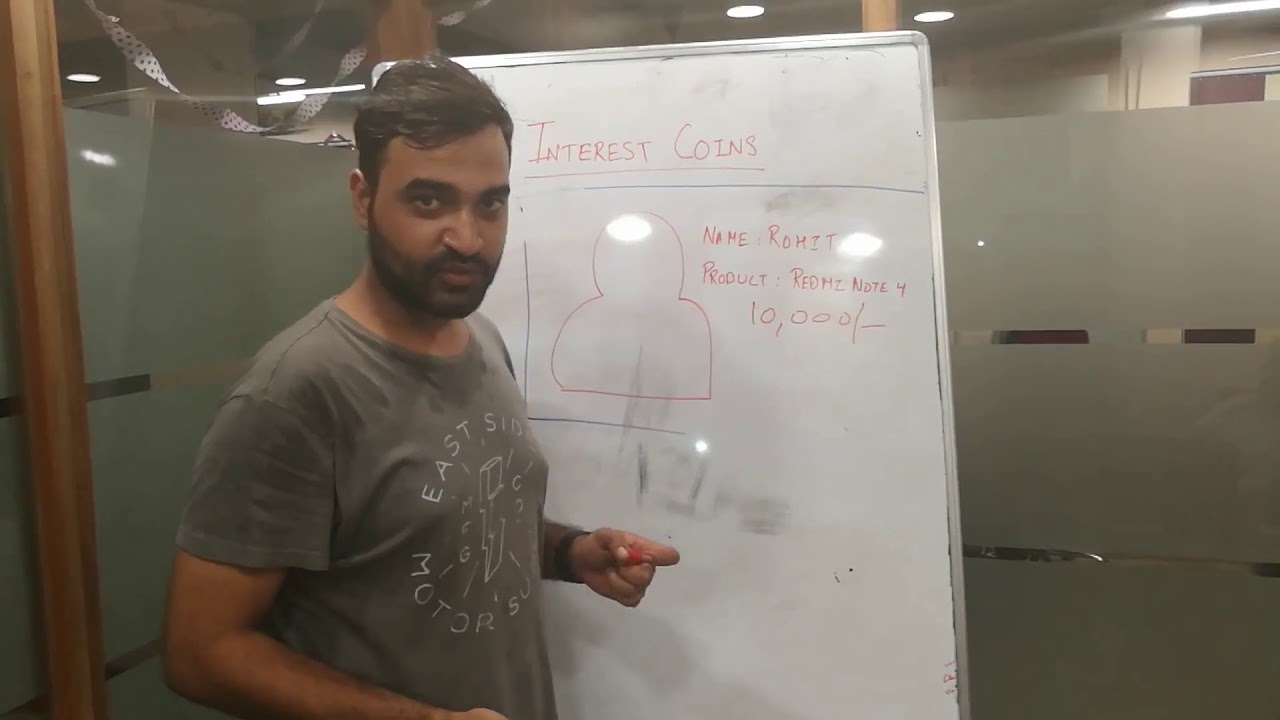 INTEREST COINS
NAME : ROHIT
PRODUCT : REDMI NOTE 4
10,000/-
EAST SID
MFG CO
MOTOR'S